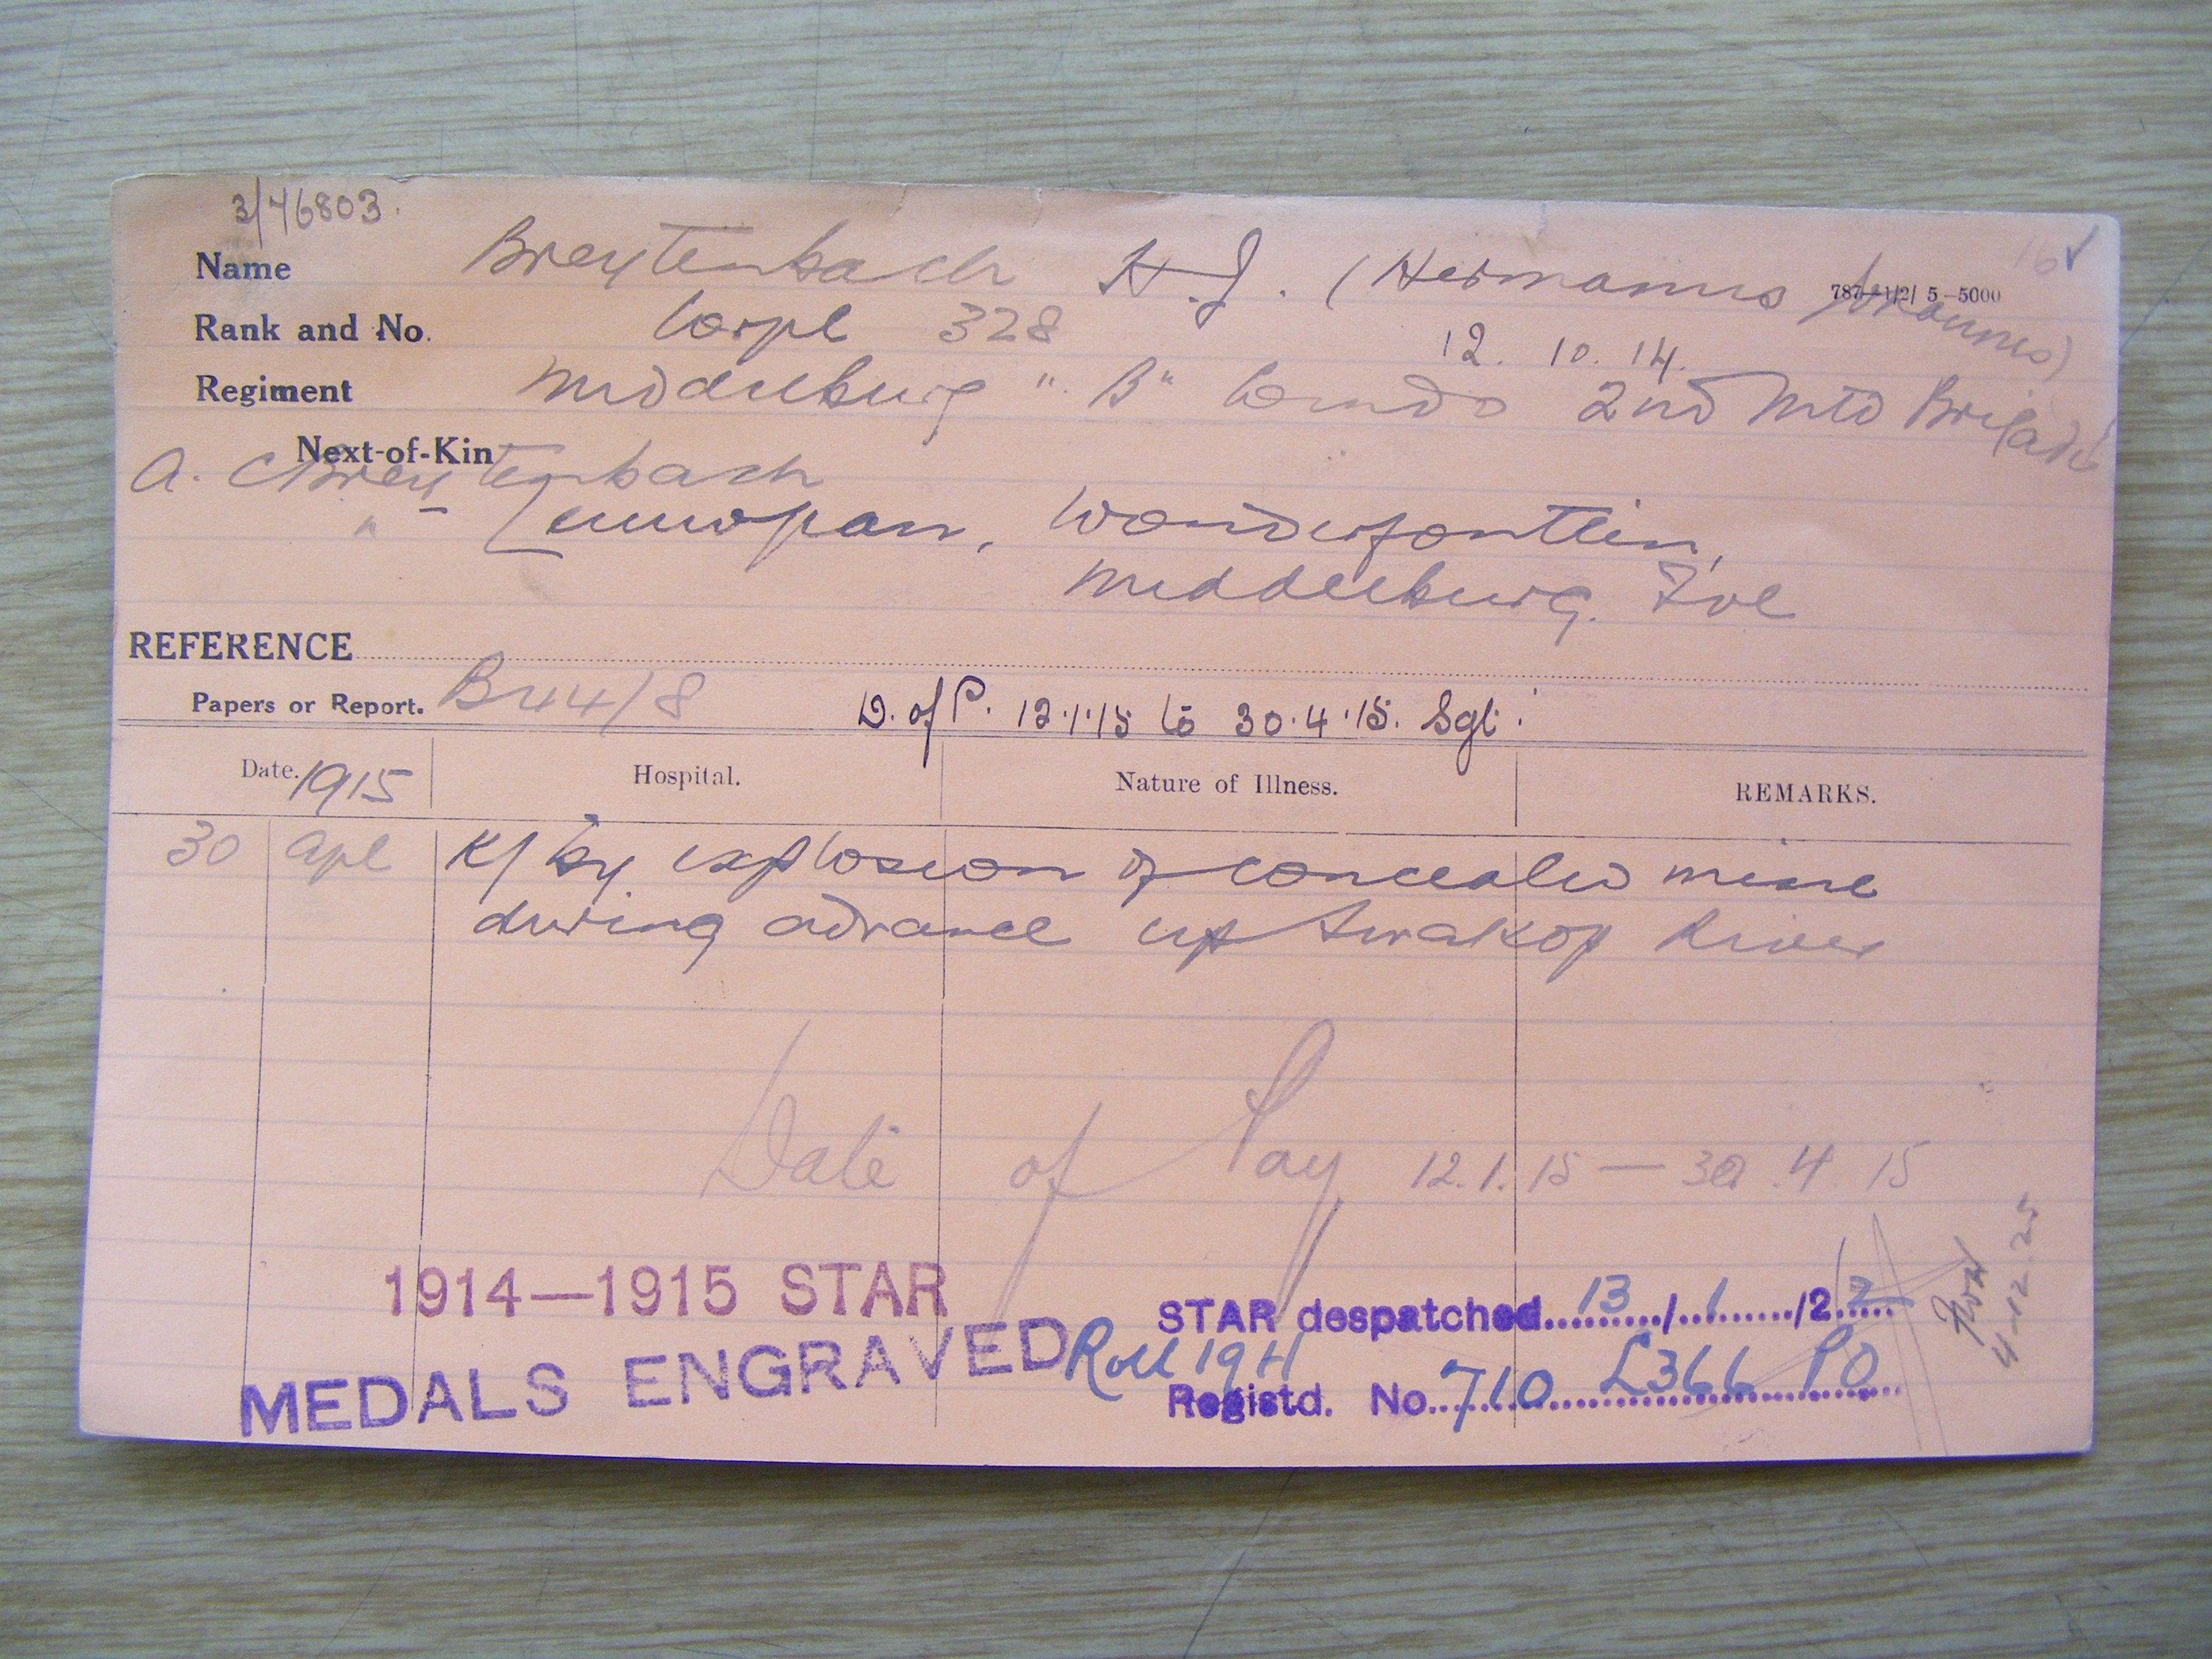 3/46803.
Name Breytenbach H.J. (Hermanus Johannes)
787—1/2/ 5—5000
Rank and No. Corpl 328
12. 10. 14.
Regiment Middelburg "B" Comdo 2nd Mtd Brigade
Next-of-Kin
A. Breytenbach
Leeuwpan, Wonderfontein,
Middelburg. Tvl
REFERENCE
Papers or Report. B44/8 D. of P. 12.1.15 to 30.4.15. Sgt.
Date. 1915 Hospital. Nature of Illness. REMARKS.
30 Apl K/ by explosion of concealed mine
during advance up Swakop River
Date of Pay 12.1.15 — 30.4.15
1914—1915 STAR
STAR despatched 13/1/22
MEDALS ENGRAVED Roll 19H
Registd. No. 710 L366 PO
4-12-25